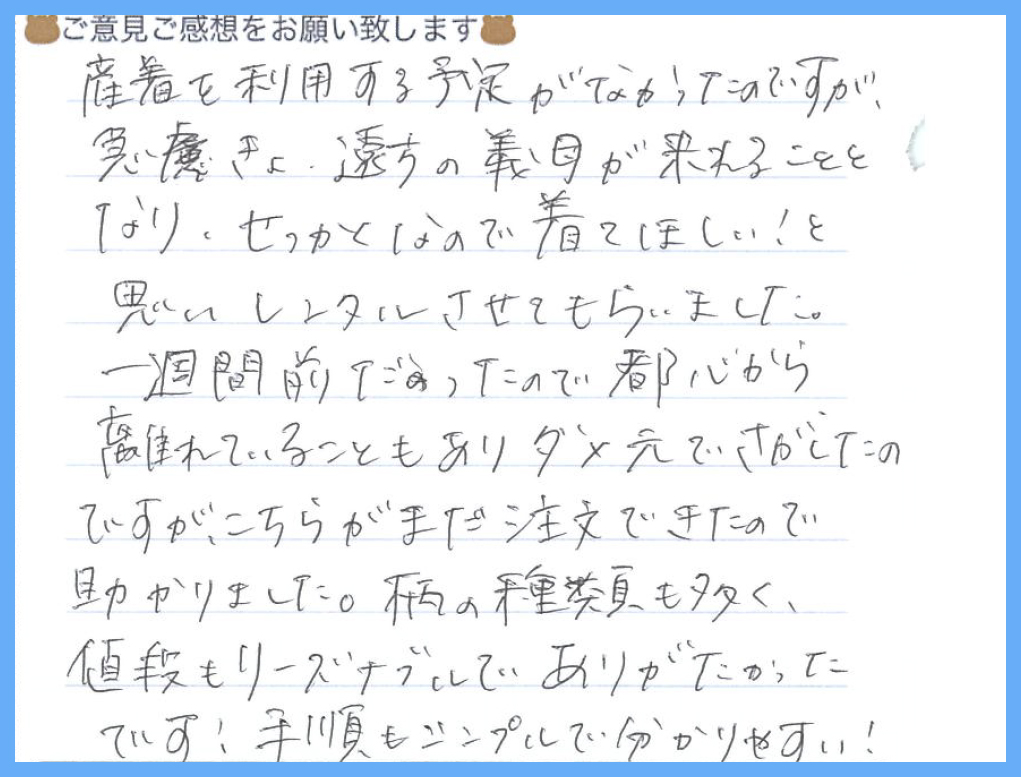 ご意見ご感想をお願い致します
産着を利用する予定がなかったのですが、
急慮きょ、遠方の義母が来れることと
なり、せっかくなので着てほしい！と
思い レンタルさせてもらいました。
一週間前だったので都心から
離れていることもありダメ元でさがしたの
ですが、こちらがまだ注文できたので
助かりました。柄の種類も多く、
値段もリーズナブルで ありがたかった
です！手順もシンプルで分かりやすい！